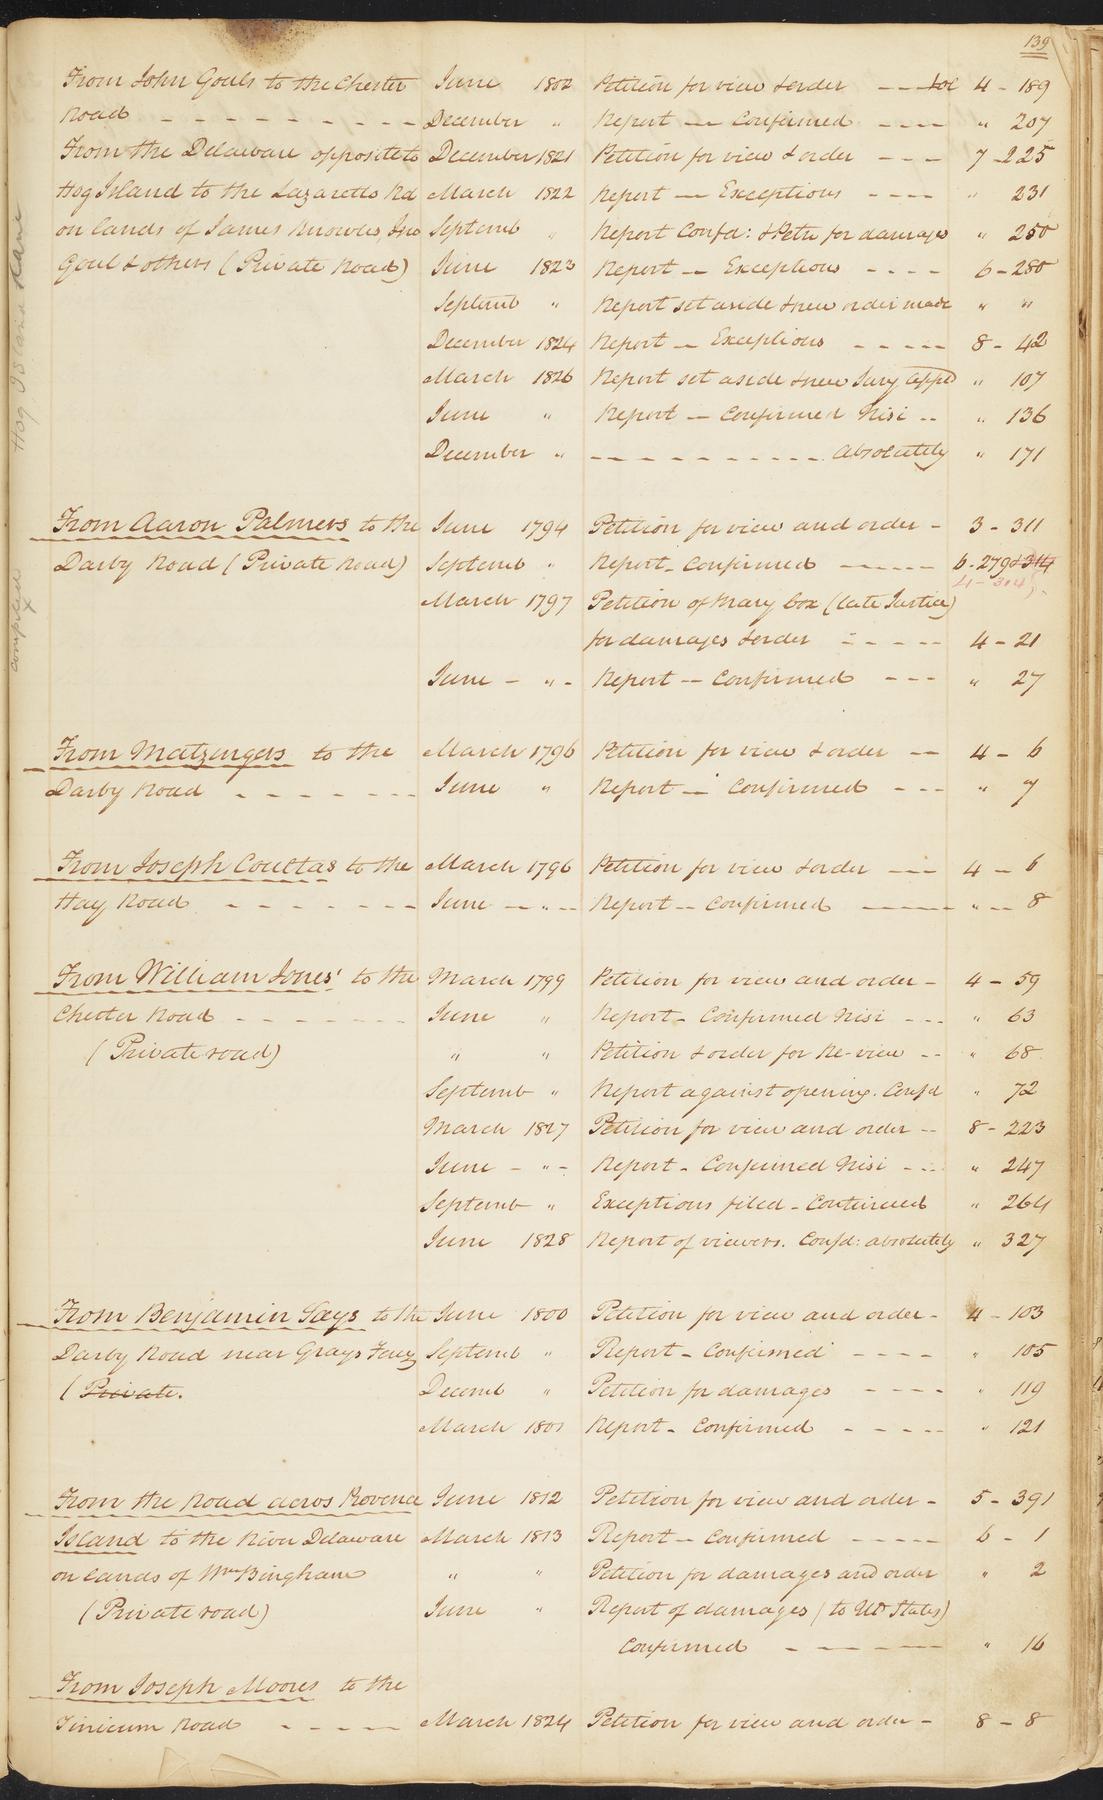 139
From John Gouls to the Chester June 1802 Petition for view & order - - - Vol 4 - 189
Road - - - - - - - - - December " Report — Confirmed - - - - " 207
From the Delaware opposite to December 1821 Petition for view & order - - - 7 - 225
Hog Island to the Lazaretto Rd March 1822 Report — Exceptions - - - - " 231
on lands of James Knowles, Jno Septemb " Report Confd: & Petn for damages " 250
Goul & others (Private Road) June 1823 Report — Exceptions - - - - 6 - 280
Septemb " Report set aside & new order made " "
December 1824 Report — Exceptions - - - - - 8 - 42
March 1826 Report set aside & new Jury appd " 107
June " Report — Confirmed Nisi - - " 136
December " - - - - - - - - - - - Absolutely " 171
Hog Island Lane
From Aaron Palmers to the June 1794 Petition for view and order - 3 - 311
Darby Road (Private Road) Septemb " Report - Confirmed - - - - - 6 - 279 & 314
4 - 304
March 1797 Petition of Mary Cox (late Justice)
for damages & order - - - - - 4 - 21
June - " - Report — Confirmed - - - " 27
compiled
From Matzingers to the March 1796 Petition for view & order - - 4 - 6
Darby Road - - - - - - - June " Report — Confirmed - - - " 7
From Joseph Coultas to the March 1796 Petition for view & order - - - 4 - 6
Hay Road - - - - - - - June - " - - Report — Confirmed - - - - " - - 8
From William Jones' to the March 1799 Petition for view and order - 4 - 59
Chester Road - - - - - - - June " Report - Confirmed Nisi - - - " 63
(Private road) " " Petition & order for Re-view - - " 68
Septemb " Report against opening. Confd " 72
March 1827 Petition for view and order - - 8 - 223
June - " - Report - Confirmed Nisi - - - " 247
Septemb " Exceptions filed - Continued " 264
June 1828 Report of viewers. Confd: absolutely " 327
From Benjamin Says to the June 1800 Petition for view and order - 4 - 103
Darby Road near Grays Ferry Septemb " Report - Confirmed - - - - " 105
(Private. Decemb " Petition for damages - - - - " 119
March 1801 Report - Confirmed - - - - - " 121
From the Road acros Provence June 1812 Petition for view and order - 5 - 391
Island to the River Delaware March 1813 Report — Confirmed - - - - - 6 - 1
on lands of Wm Bingham " " Petition for damages and order " 2
(Private road) June " Report of damages (to Utd States)
Confirmed - - - - - - " 16
From Joseph Moores to the
Tinicum Road - - - - - March 1824 Petition for view and order - 8 - 8